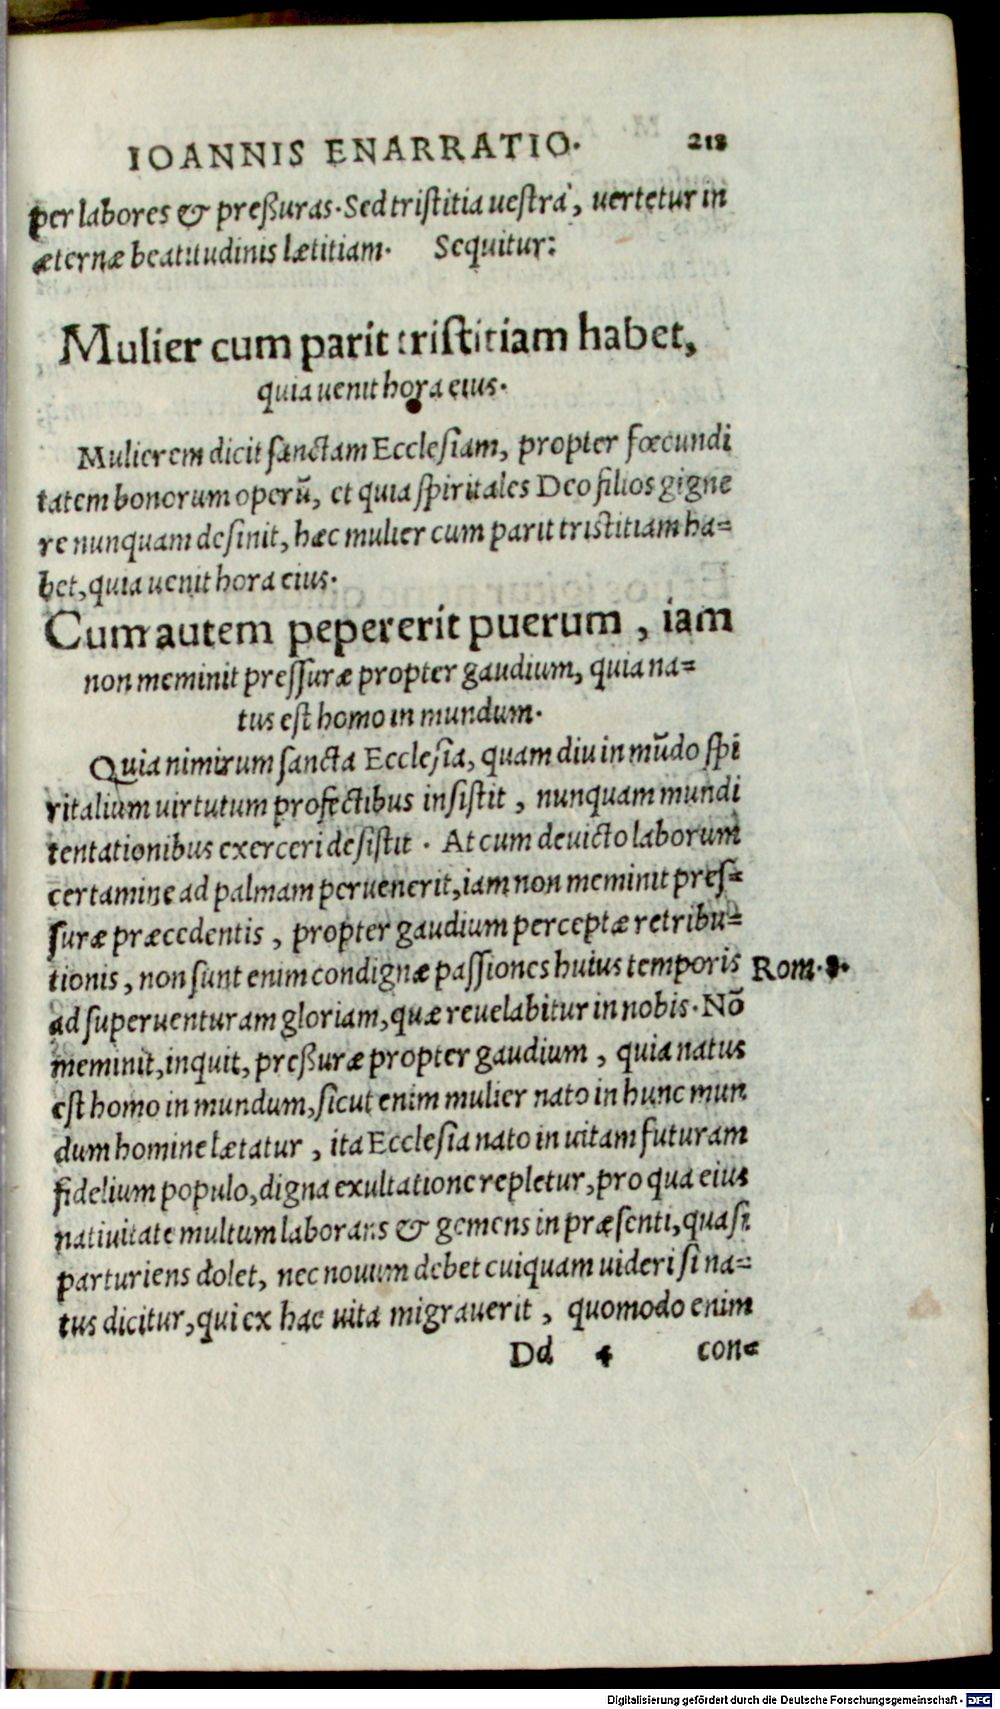 IOANNIS ENARRATIO. 218
per labores & preßuras. Sed tristitia uestra, uertetur in
æternæ beatitudinis lætitiam. Sequitur:
Mulier cum parit tristitiam habet,
quia uenit hora eius.
Mulierem dicit sanctam Ecclesiam, propter fœcundi
tatem bonorum operū, et quia spiritales Deo filios gigne
re nunquam desinit, hæc mulier cum parit tristitiam ha-
bet, quia uenit hora eius.
Cum autem pepererit puerum, iam
non meminit pressuræ propter gaudium, quia na-
tus est homo in mundum.
Quia nimirum sancta Ecclesia, quam diu in mūdo spi
ritalium uirtutum profectibus insistit, nunquam mundi
tentationibus exerceri desistit. At cum deuicto laborum
certamine ad palmam peruenerit, iam non meminit pres-
suræ præcedentis, propter gaudium perceptæ retribu-
tionis, non sunt enim condignæ passiones huius temporis Rom. 8.
ad superuenturam gloriam, quæ reuelabitur in nobis. Nō
meminit, inquit, preßuræ propter gaudium, quia natus
est homo in mundum, sicut enim mulier nato in hunc mun
dum homine lætatur, ita Ecclesia nato in uitam futuram
fidelium populo, digna exultatione repletur, pro qua eius
natiuitate multum laborans & gemens in præsenti, quasi
parturiens dolet, nec nouum debet cuiquam uideri si na-
tus dicitur, qui ex hac uita migrauerit, quomodo enim
Dd 4 con-
Digitalisierung gefördert durch die Deutsche Forschungsgemeinschaft - DFG